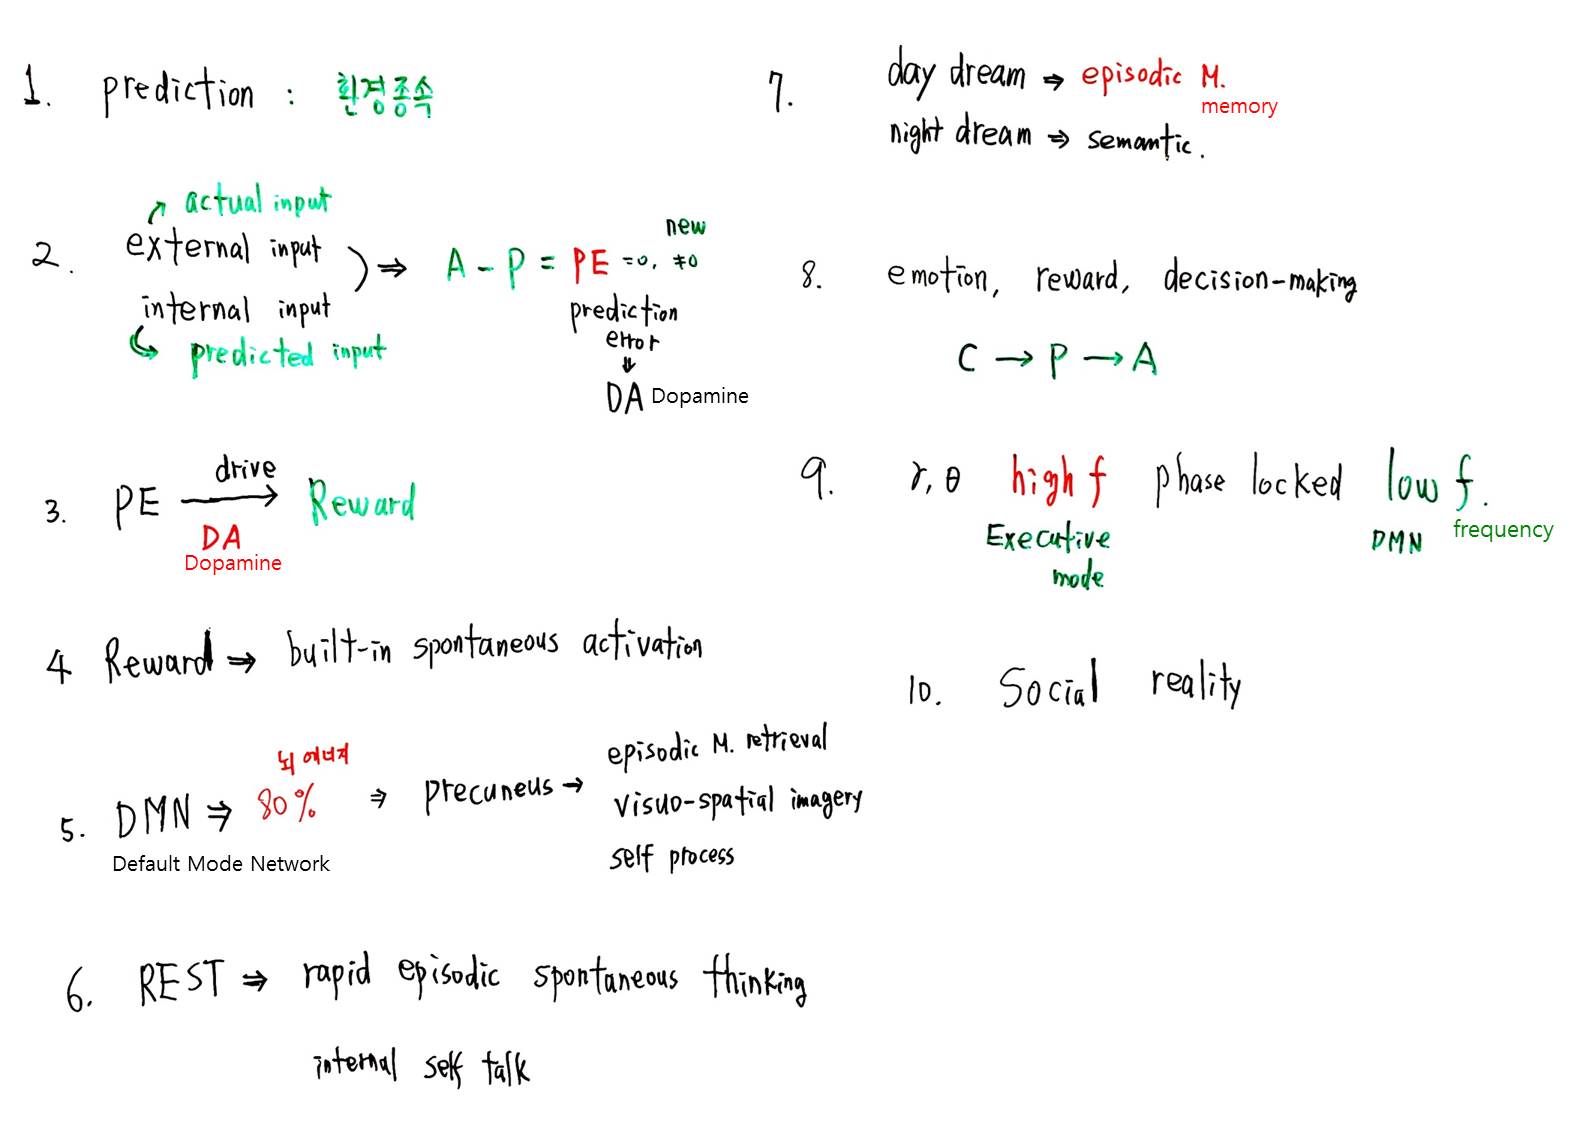 1. prediction : 환경종속
2.
actual input
external input
internal input
predicted input
⇒ A - P = PE =0, new ≠0
prediction
error
⇓
DA Dopamine
3. PE drive → Reward
DA
Dopamine
4 Reward ⇒ built-in spontaneous activation
뇌 에너지
5. DMN ⇒ 80% ⇒ precuneus → episodic M. retrieval
visuo-spatial imagery
self process
Default Mode Network
6. REST ⇒ rapid episodic spontaneous thinking
internal self talk
7. day dream ⇒ episodic M.
memory
night dream ⇒ semantic.
8. emotion, reward, decision-making
C → P → A
9. γ, θ high f phase locked low f.
frequency
Executive
mode
DMN
10. Social reality